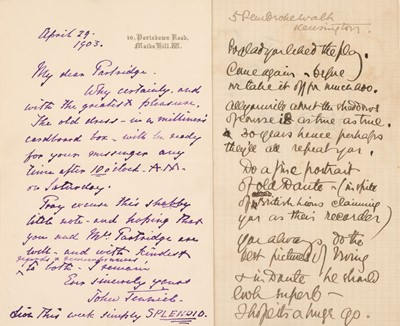 April 29.
1903.
10, Portsdown Road,
Maida Hill. W.
My dear Partridge.
Why certainly - and
with the greatest pleasure.
The old dress - in a milliner's
cardboard box - will be ready
for your messenger any
time after 10 o'clock - A.M.
on Saturday.
Pray excuse this shabby
little note - and hoping that
you and Mrs. Partridge are
well - and with kindest
regards & remembrances
to both - I remain
Ever sincerely yours
John Tenniel.
Lion this week simply SPLENDID.
5 Pembroke Walk
Kensington.
So glad you liked the play.
Come again - before
we take it off for much ado.
All you will about the shadows
of course is as true as true.
30 years hence perhaps
they'll all repeat you.
Do a fine portrait
of old Dante - (in spite
of British Lions claiming
you as their recorder)
you always do the
best pictures of Irving
& in Dante he should
look superb -
I hope its a huge go.